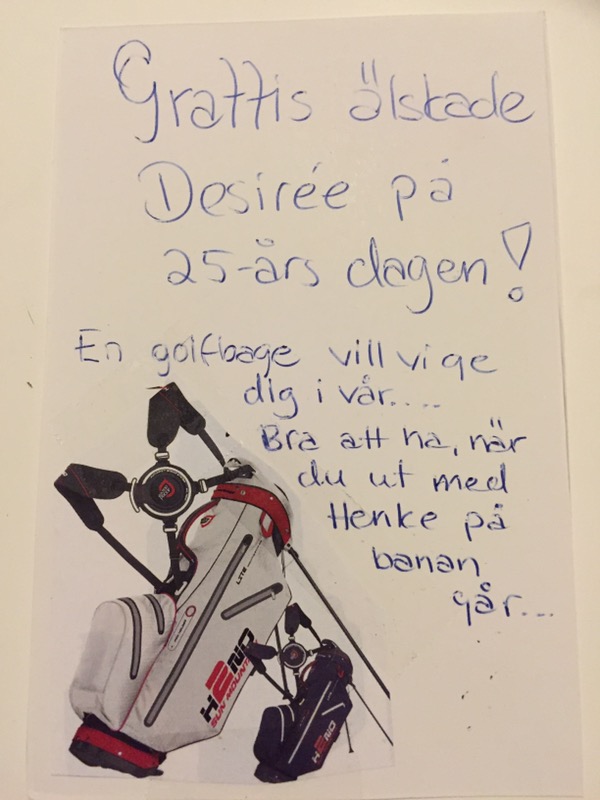 Grattis älskade
Desirée på
25-års dagen!
En golfbage vill vi ge
dig i vår.....
Bra att ha, när
du ut med
Henke på
banan
går...
LITE
H2NO
SUN MOUNTAIN
H2NO